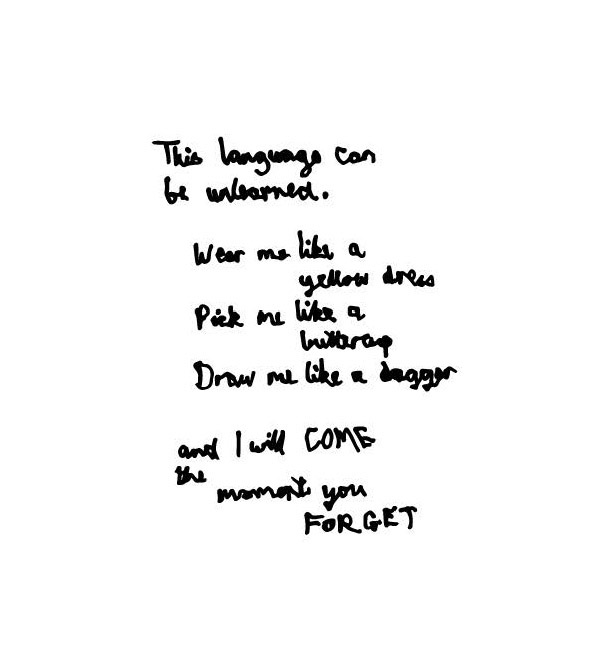 This language can
be unlearned.
Wear me like a
yellow dress
Pick me like a
buttercup
Draw me like a dagger
and I will COME
the
moment you
FORGET